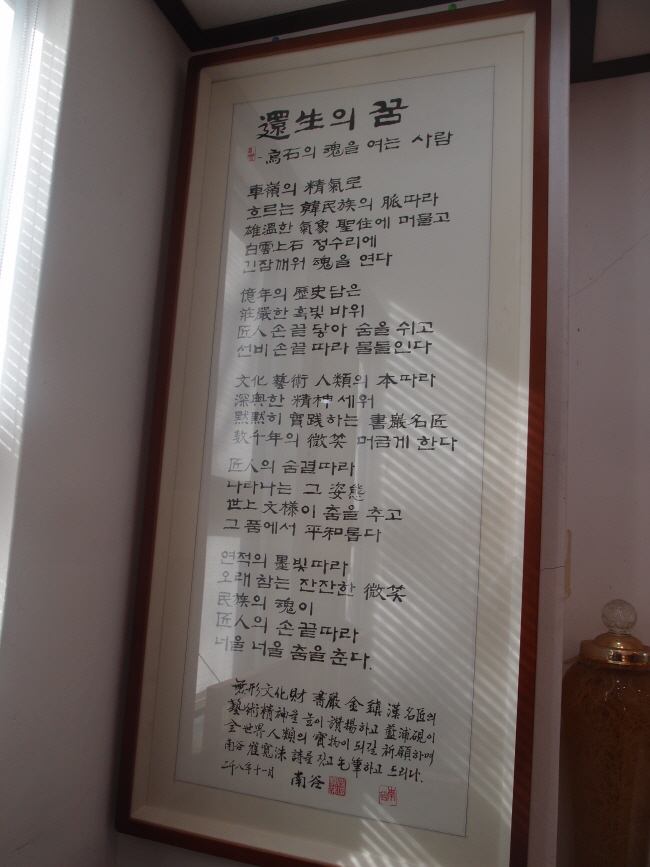 還生의 꿈
- 烏石의 魂을 여는 사람
車嶺의 精氣로
흐르는 韓民族의 脈따라
雄溫한 氣象 聖住에 머물고
白雲上石 정수리에
긴잠깨워 魂을 연다
億年의 歷史담은
莊嚴한 흑빛 바위
匠人 손끝 닿아 숨을 쉬고
선비 손끝 따라 물들인다
文化 藝術 人類의 本따라
深奧한 精神 세워
默默히 實践하는 書巖名匠
數千年의 微笑 머금게 한다
匠人의 숨결따라
나타나는 그 姿態
世上 文樣이 춤을 추고
그 품에서 平和롭다
연적의 墨빛따라
오래 참는 잔잔한 微笑
民族의 魂이
匠人의 손끝따라
너울 너울 춤을 춘다.
無形文化財 書巖 金鎭漢 名匠의
藝術精神을 높이 讚揚하고 藍浦硯이
全世界人類의 寶物이 되길 祈願하며
南谷 崔寬洙 詩를 짓고 毛筆하고 드리다.
二千八年十一月 南谷